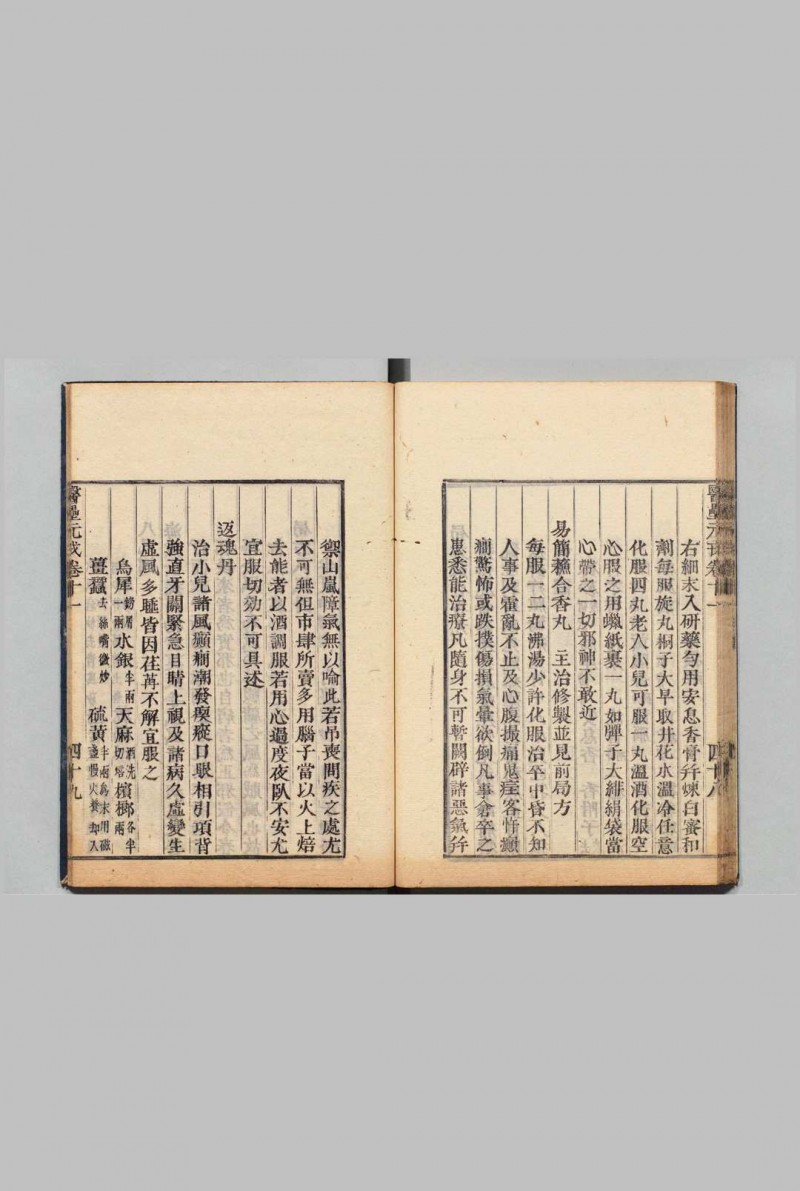 右細末入研藥勻用安息香膏并煉白蜜和
劑每服旋丸桐子大早取井花水溫冷任意
化服四丸老人小兒可服一丸溫酒化服空
心服之用蠟紙裹一丸如彈子大緋絹袋當
心帶之一切邪神不敢近
易簡蘇合香丸 主治修製並見前局方
每服一二丸沸湯少許化服治卒中昏不知
人事及霍亂不止及心腹撮痛鬼疰客忤癲
癇驚怖或跌撲傷損氣暈欲倒凡事倉卒之
患悉能治療凡隨身不可暫闕辟諸惡氣并
禦山嵐瘴氣無以喻此若吊喪問疾之處尤
不可無但市肆所賣多用腦子當以火上焙
去能者以酒調服若用心過度夜臥不安尤
宜服切効不可具述
返魂丹
治小兒諸風癲癇潮發瘈瘲口眼相引項背
強直牙關緊急目睛上視及諸病久虛變生
虛風多睡皆因荏苒不解宜服之
烏犀鎊屑一兩 水銀半兩 天麻酒洗切焙 檳榔各半兩
薑蠶去絲嘴微炒 硫黃半兩為末用磁盞慢火養却入
醫壘元戎卷十一 四十八
醫壘元戎卷十一 四十九